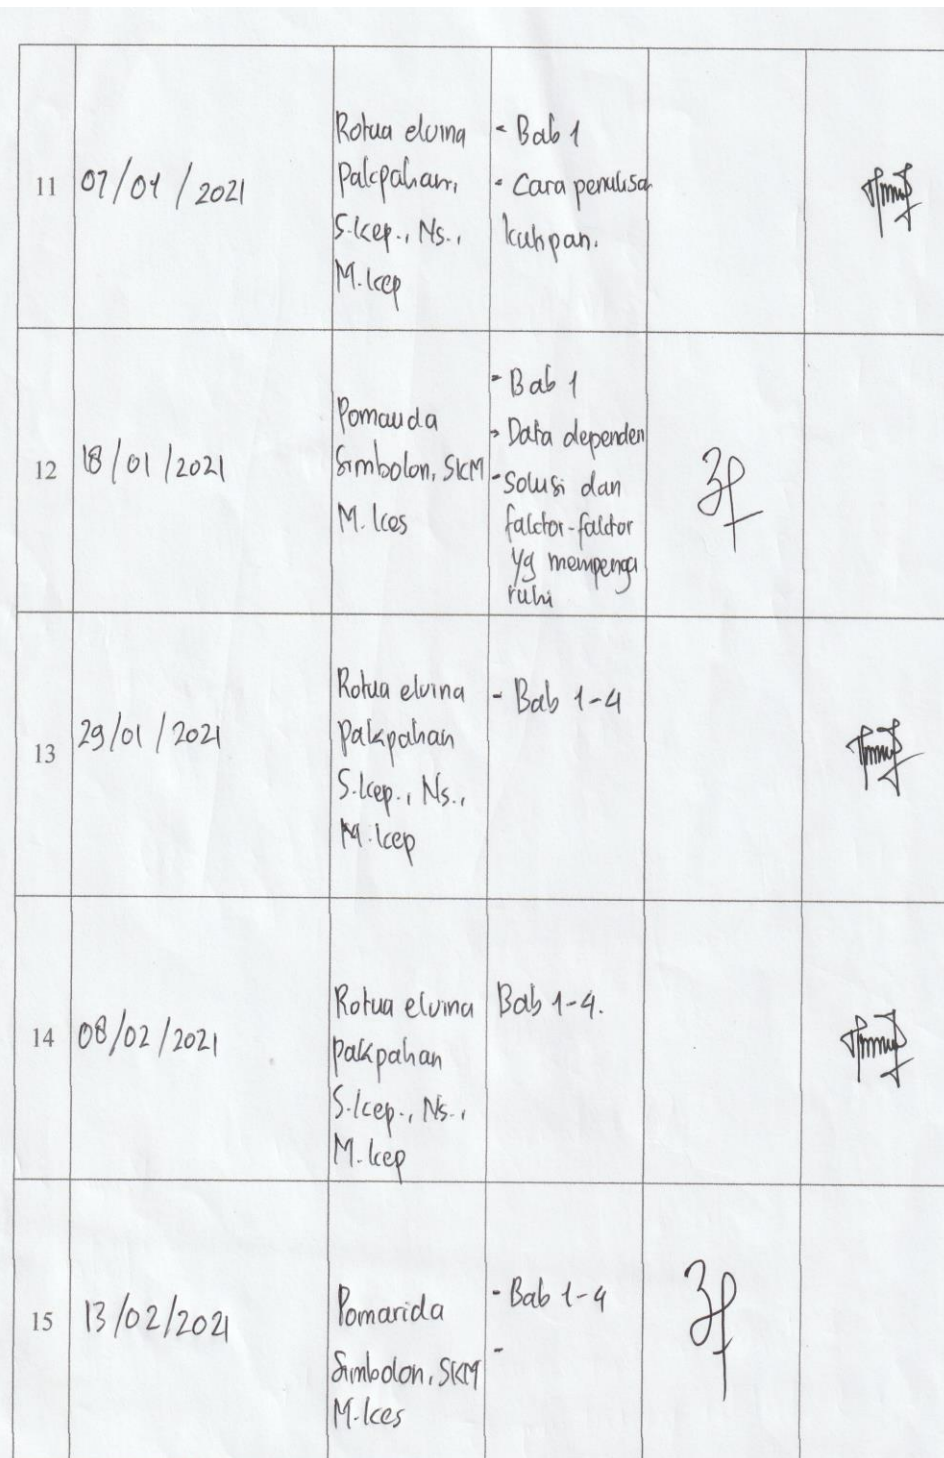 11
07/01/2021
Rotua elvina
Pakpahan,
S.kep., Ns.,
M.kep
- Bab 1
- Cara penulisan
kutipan.
12
18/01/2021
Pomarida
Simbolon, SKM
M.kes
- Bab 1
- Data dependen
- Solusi dan
faktor-faktor
yg mempenga
ruhi
13
29/01/2021
Rotua elvina
Pakpahan
S.kep., Ns.,
M.kep
- Bab 1-4
14
08/02/2021
Rotua elvina
pakpahan
S.kep., Ns.,
M.kep
Bab 1-4.
15
13/02/2021
Pomarida
Simbolon, SKM
M.kes
- Bab 1-4
-